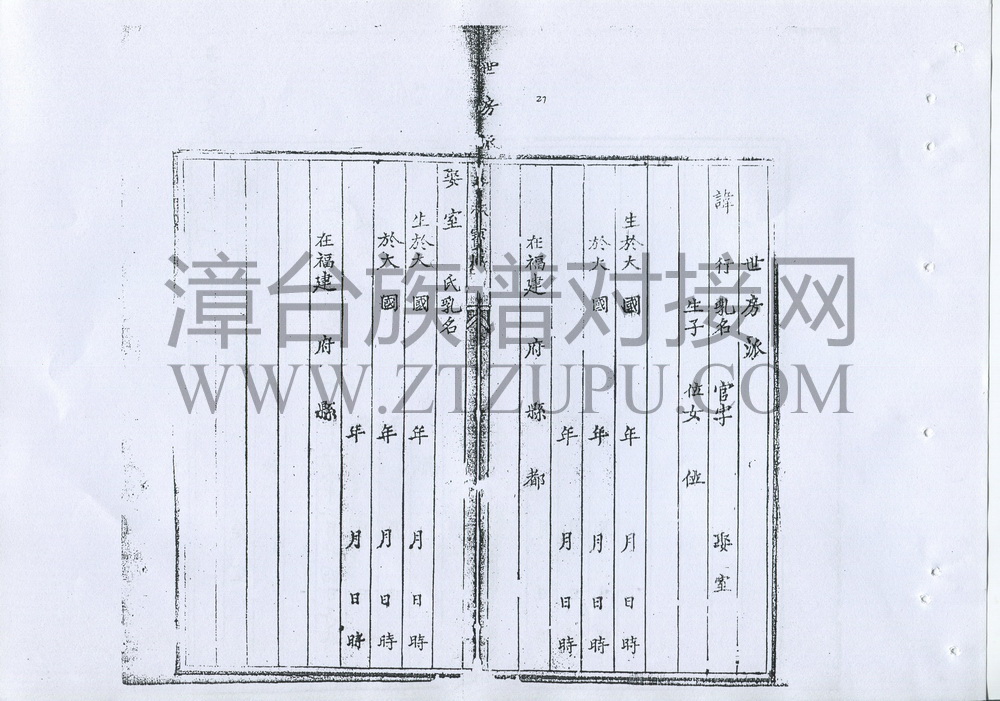 27
世房派
世 房 派
諱 行乳名 官字 娶室
生子 位女 位
生於大國 年 月 日 時
於大國 年 月 日 時
年 月 日 時
在福建 府 縣 都
娶室 氏乳名
生於大國 年 月 日 時
於大國 年 月 日 時
年 月 日 時
在福建 府 縣
漳台族谱对接网
WWW.ZTZUPU.COM